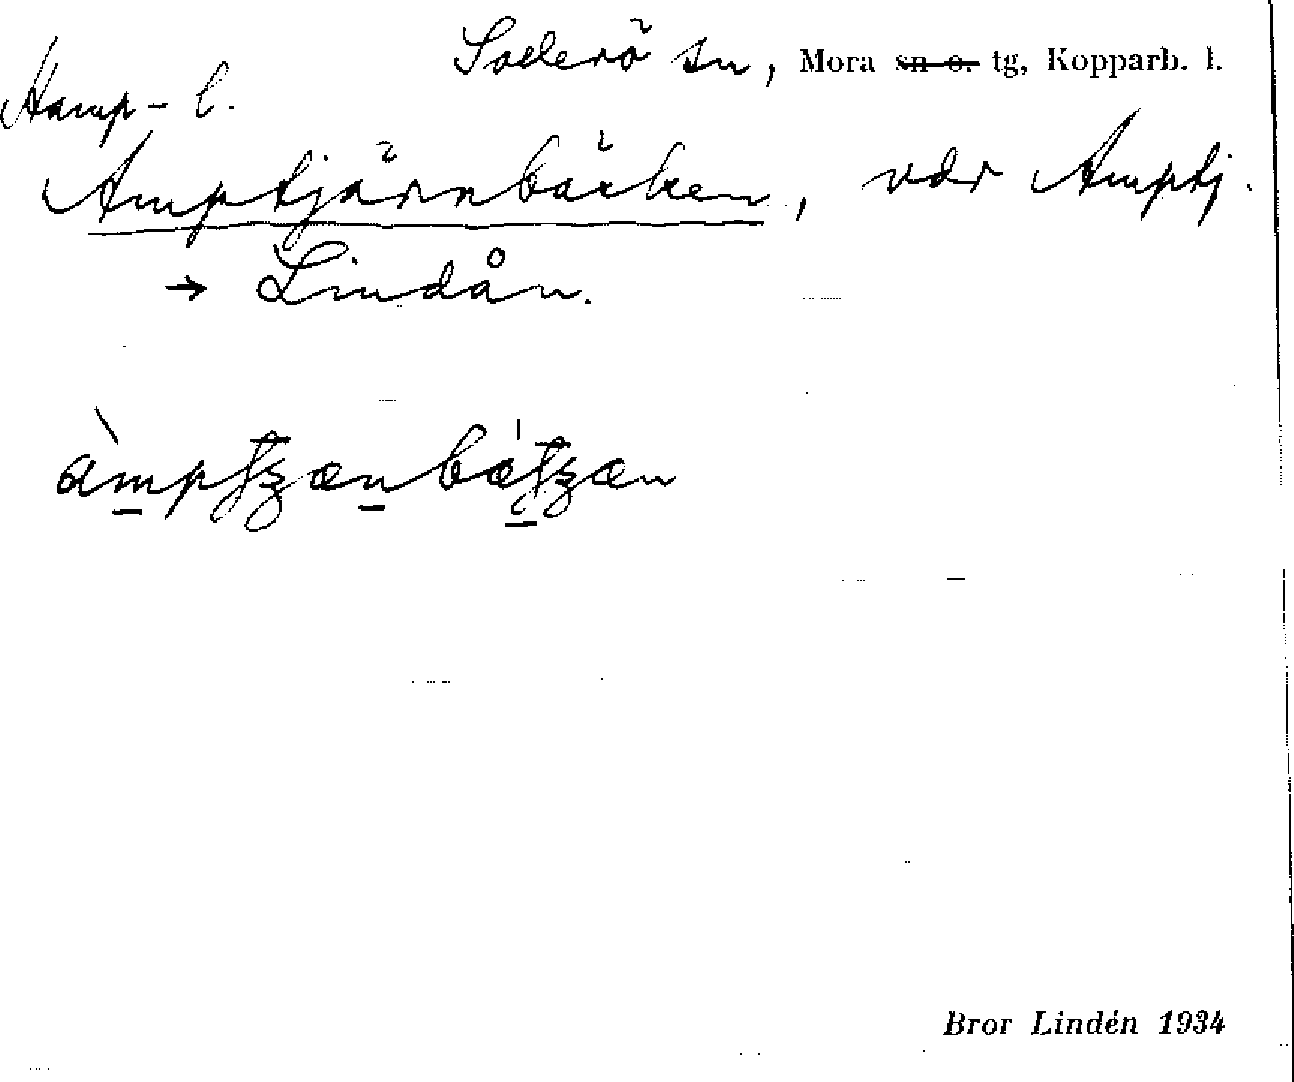 Sollerö sn, Mora sn o. tg, Kopparb. l.
Hamp- l.
Amptjärnbäcken, vdr Amptj.
→ Lindån.
Bror Lindén 1934